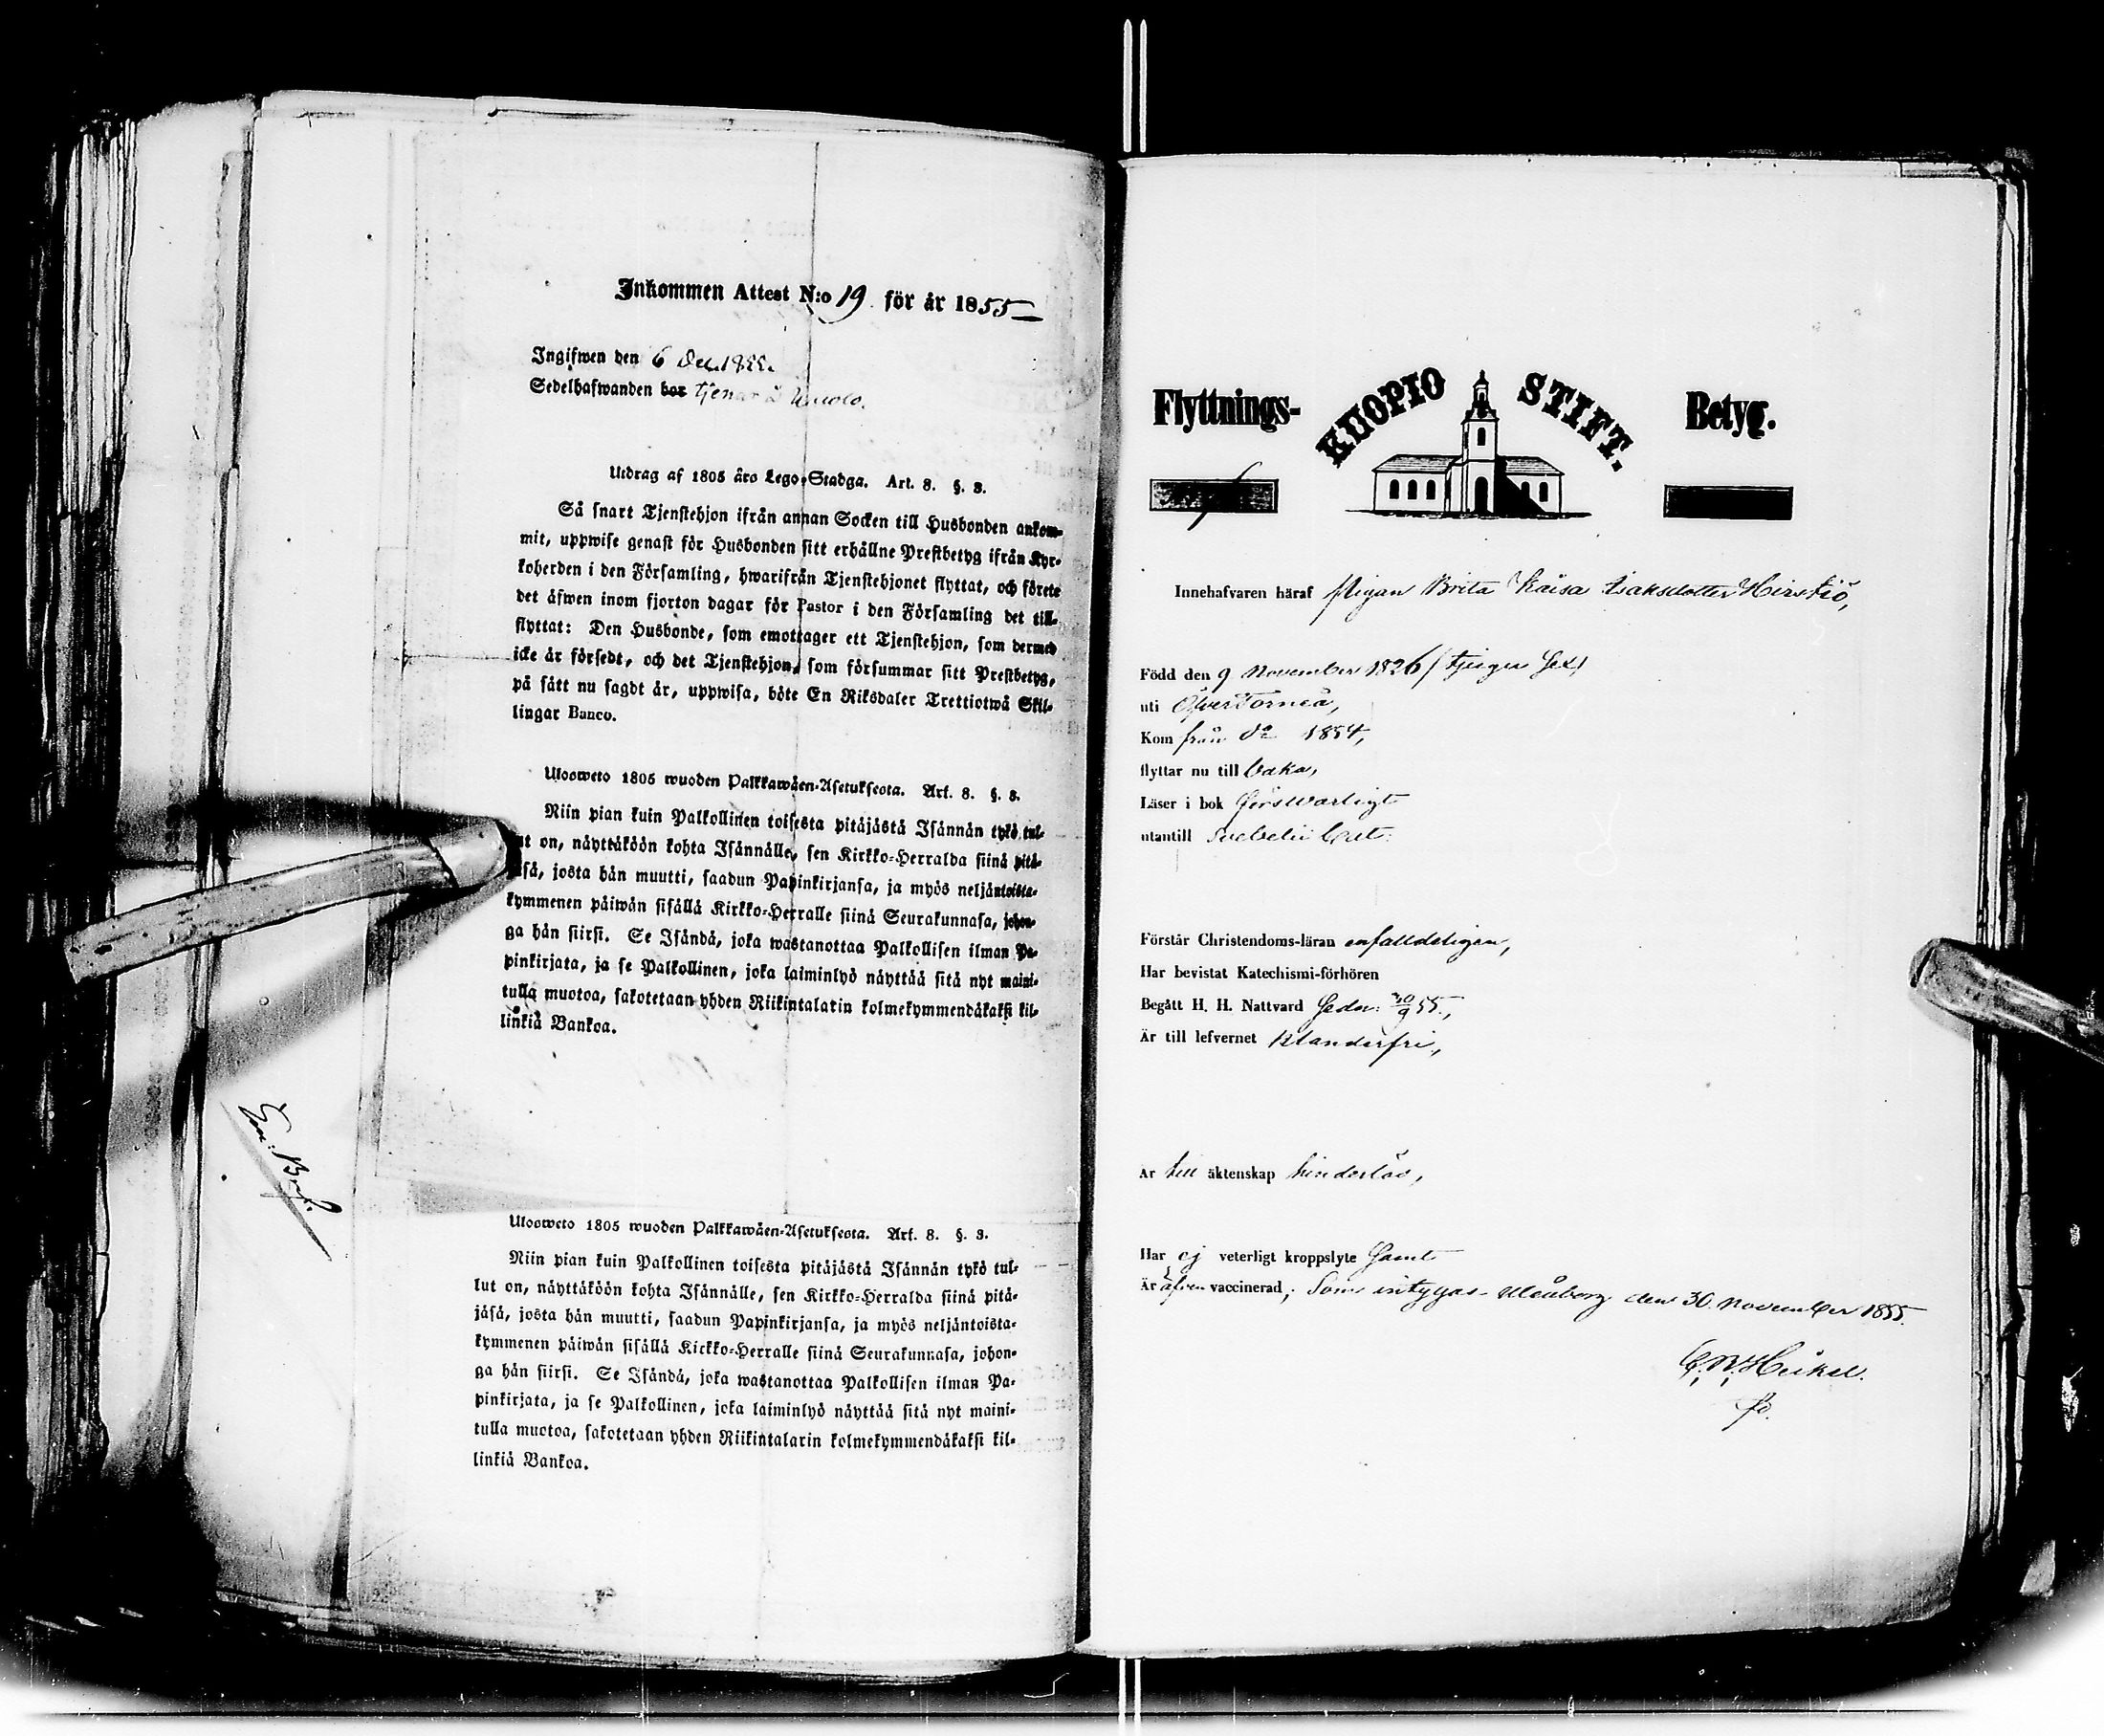 Inkommen Attest N:o 19 för år 1855
Ingifwen den 6 Dec. 1855.
Sedelhafwanden bor tjenar å
Utdrag af 1805 års Lego-Stadga. Art. 8. §. 3.
Så snart Tjenstehjon ifrån annan Socken till Husbonden ankom-
mit, uppwise genast för Husbonden sitt erhållne Prestbetyg ifrån Kyr-
koherden i den Församling, hwarifrån Tjenstehjonet flyttat, och förete
det äfwen inom fjorton dagar för Pastor i den Församling det till-
flyttat: Den Husbonde, som emottager ett Tjenstehjon, som dermed
icke är försedt, och det Tjenstehjon, som försummar sitt Prestbetyg,
på sätt nu sagdt är, uppwisa, böte En Riksdaler Trettiotwå Skil-
lingar Banco.
Ulosweto 1805 wuoden Palkkawäen-Asetuksesta. Art. 8. §. 3.
Niin pian kuin Palkollinen toisesta pitäjästä Isännän tykö tul-
ut on, näyttäköön kohta Isännälle, sen Kirkko-Herralda siinä pitä-
äsä, josta hän muutti, saadun Papinkirjansa, ja myös neljäntoista-
kymmenen päiwän sisällä Kirkko-Herralle siinä Seurakunnasa, johon-
ga hän siirsi. Se Isändä, joka wastanottaa Palkollisen ilman Pa-
pinkirjata, ja se Palkollinen, joka laiminlyö näyttää sitä nyt maini-
tulla muotoa, sakotetaan yhden Riikintalarin kolmekymmendäkaksi kil-
linkiä Bankoa.
Ulosweto 1805 wuoden Palkkawäen-Asetuksesta. Art. 8. §. 3.
Niin pian kuin Palkollinen toisesta pitäjästä Isännän tykö tul-
lut on, näyttäköön kohta Isännälle, sen Kirkko-Herralda siinä pitä-
jäsä, josta hän muutti, saadun Papinkirjansa, ja myös neljäntoista-
kymmenen päiwän sisällä Kirkko-Herralle siinä Seurakunnasa, johon-
ga hän siirsi. Se Isändä, joka wastanottaa Palkollisen ilman Pa-
pinkirjata, ja se Palkollinen, joka laiminlyö näyttää sitä nyt maini-
tulla muotoa, sakotetaan yhden Riikintalarin kolmekymmendäkaksi kil-
linkiä Bankoa.
Flyttnings- KUOPIO STIFT. Betyg.
Innehafvaren häraf Pigan Brita Kaisa Isaksdotter Hirskiö,
Född den 9 November 1826 / tjugu sex /
uti ÖfverTorneå,
Kom från d:o 1854,
flyttar nu till
Läser i bok försvarligt
utantill Svebelii Cat:
Förstår Christendoms-läran enfalldeligen,
Har bevistat Katechismi-förhören
Begått H. H. Nattvard sedn: 30/9 55,
Är till lefvernet klanderfri,
Är till äktenskap hinderlös,
Har ej veterligt kroppslyte samt
Är äfven vaccinerad; Som intygas Uleåborg den 30 November 1855.
Heikel.